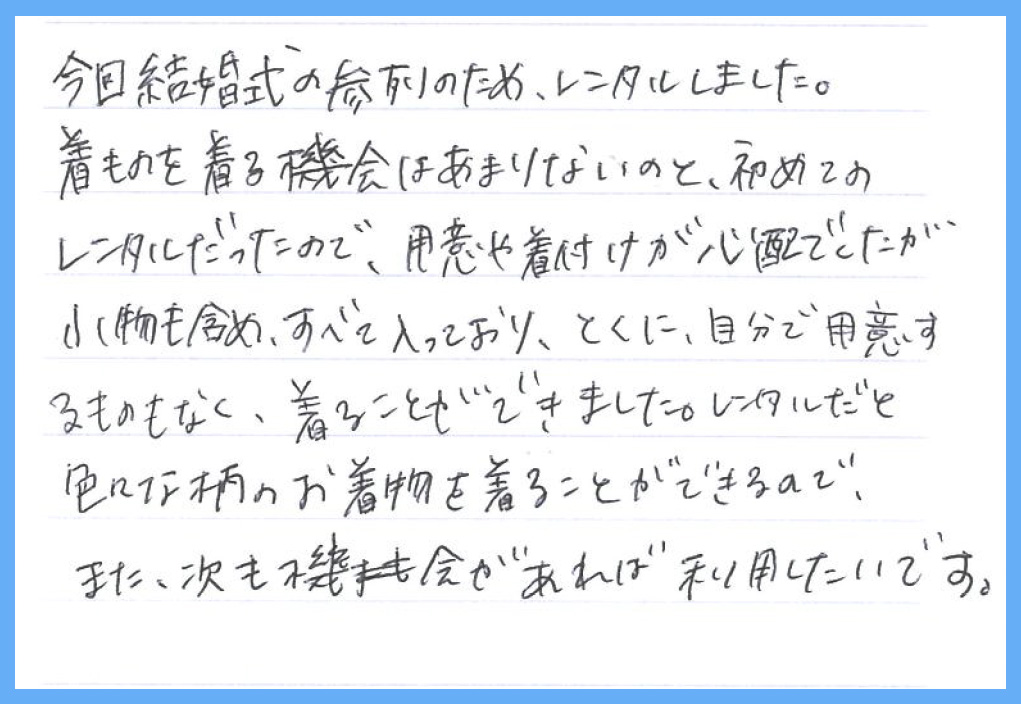 今回結婚式の参列のため、レンタルしました。
着ものを着る機会はあまりないのと、初めての
レンタルだったので、用意や着付けが心配でしたが
小物も含め、すべて入っており、とくに、自分で用意す
るものもなく、着ることができました。レンタルだと
色々な柄のお着物を着ることができるので、
また、次も機会があれば利用したいです。